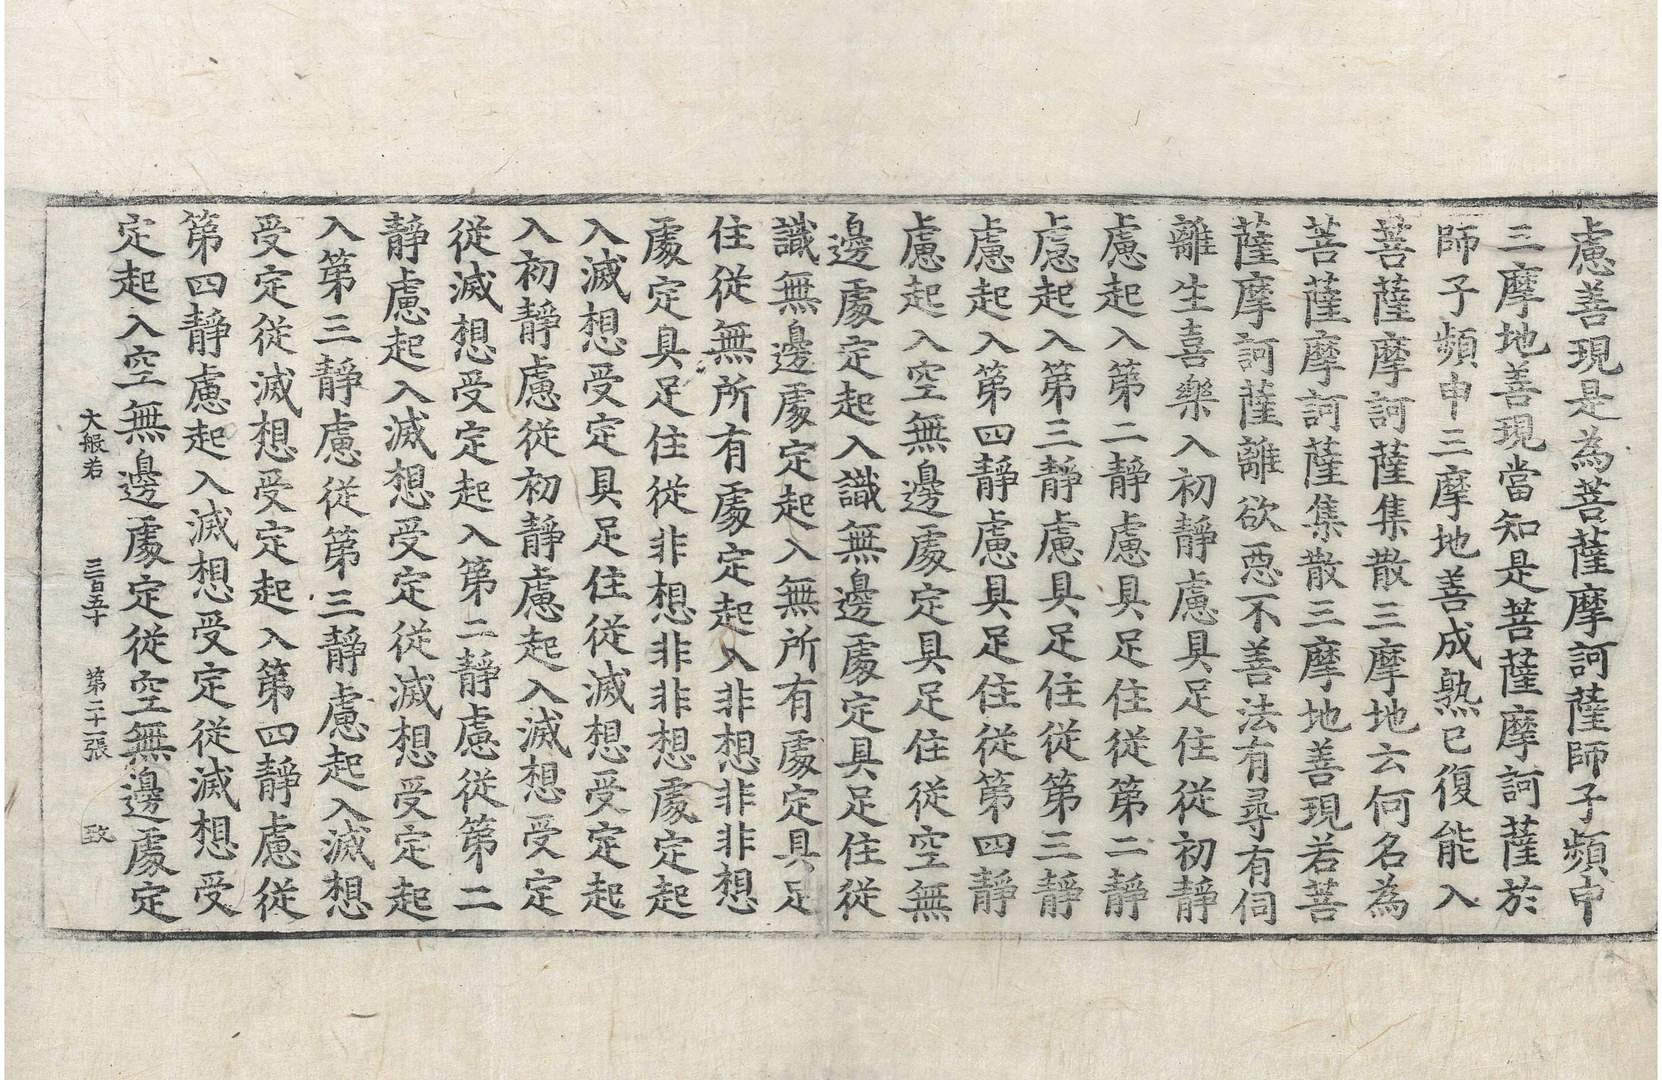 慮善現是為菩薩摩訶薩師子頻申
三摩地善現當知是菩薩摩訶薩於
師子頻申三摩地善成熟已復能入
菩薩摩訶薩集散三摩地云何名為
菩薩摩訶薩集散三摩地善現若菩
薩摩訶薩離欲惡不善法有尋有伺
離生喜樂入初靜慮具足住從初靜
慮起入第二靜慮具足住從第二靜
慮起入第三靜慮具足住從第三靜
慮起入第四靜慮具足住從第四靜
慮起入空無邊處定具足住從空無
邊處定起入識無邊處定具足住從
識無邊處定起入無所有處定具足
住從無所有處定起入非想非非想
處定具足住從非想非非想處定起
入滅想受定具足住從滅想受定起
入初靜慮從初靜慮起入滅想受定
從滅想受定起入第二靜慮從第二
靜慮起入滅想受定從滅想受定起
入第三靜慮從第三靜慮起入滅想
受定從滅想受定起入第四靜慮從
第四靜慮起入滅想受定從滅想受
定起入空無邊處定從空無邊處定
大般若 三百五十 第二十一張 致